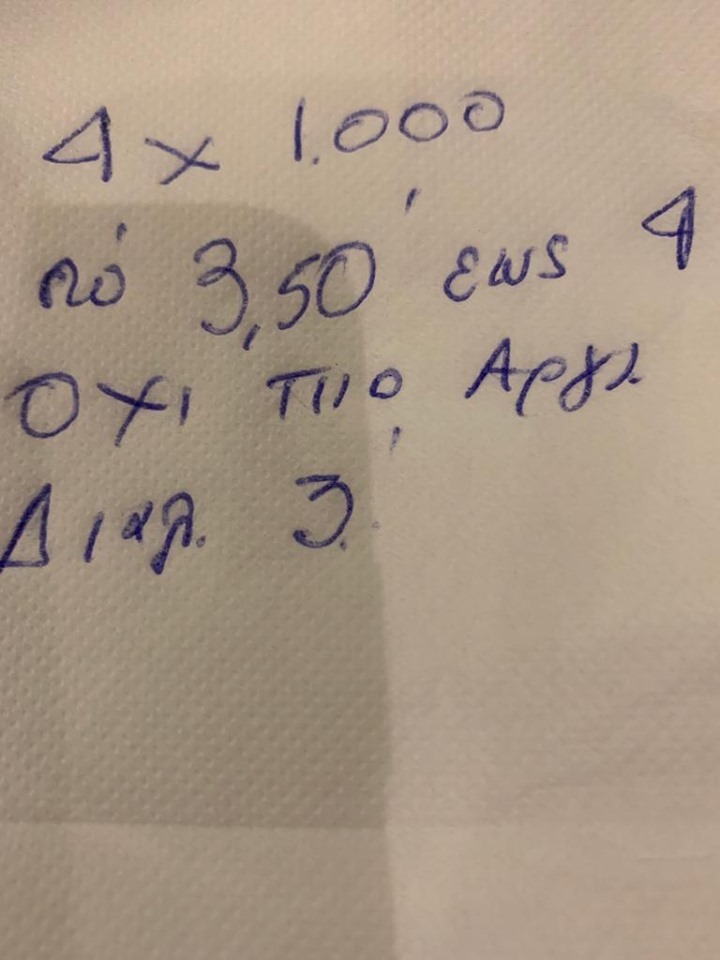 4 x 1.000
πό 3,50' εως 4
όχι πιο Αργά
Διαλ. 3.'